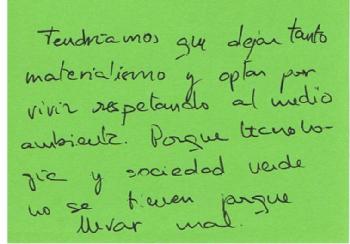 Tendríamos que dejar tanto
materialismo y optar por
vivir respetando al medio
ambiente. Porque tecnolo-
gía y sociedad verde
no se tienen porque
llevar mal.